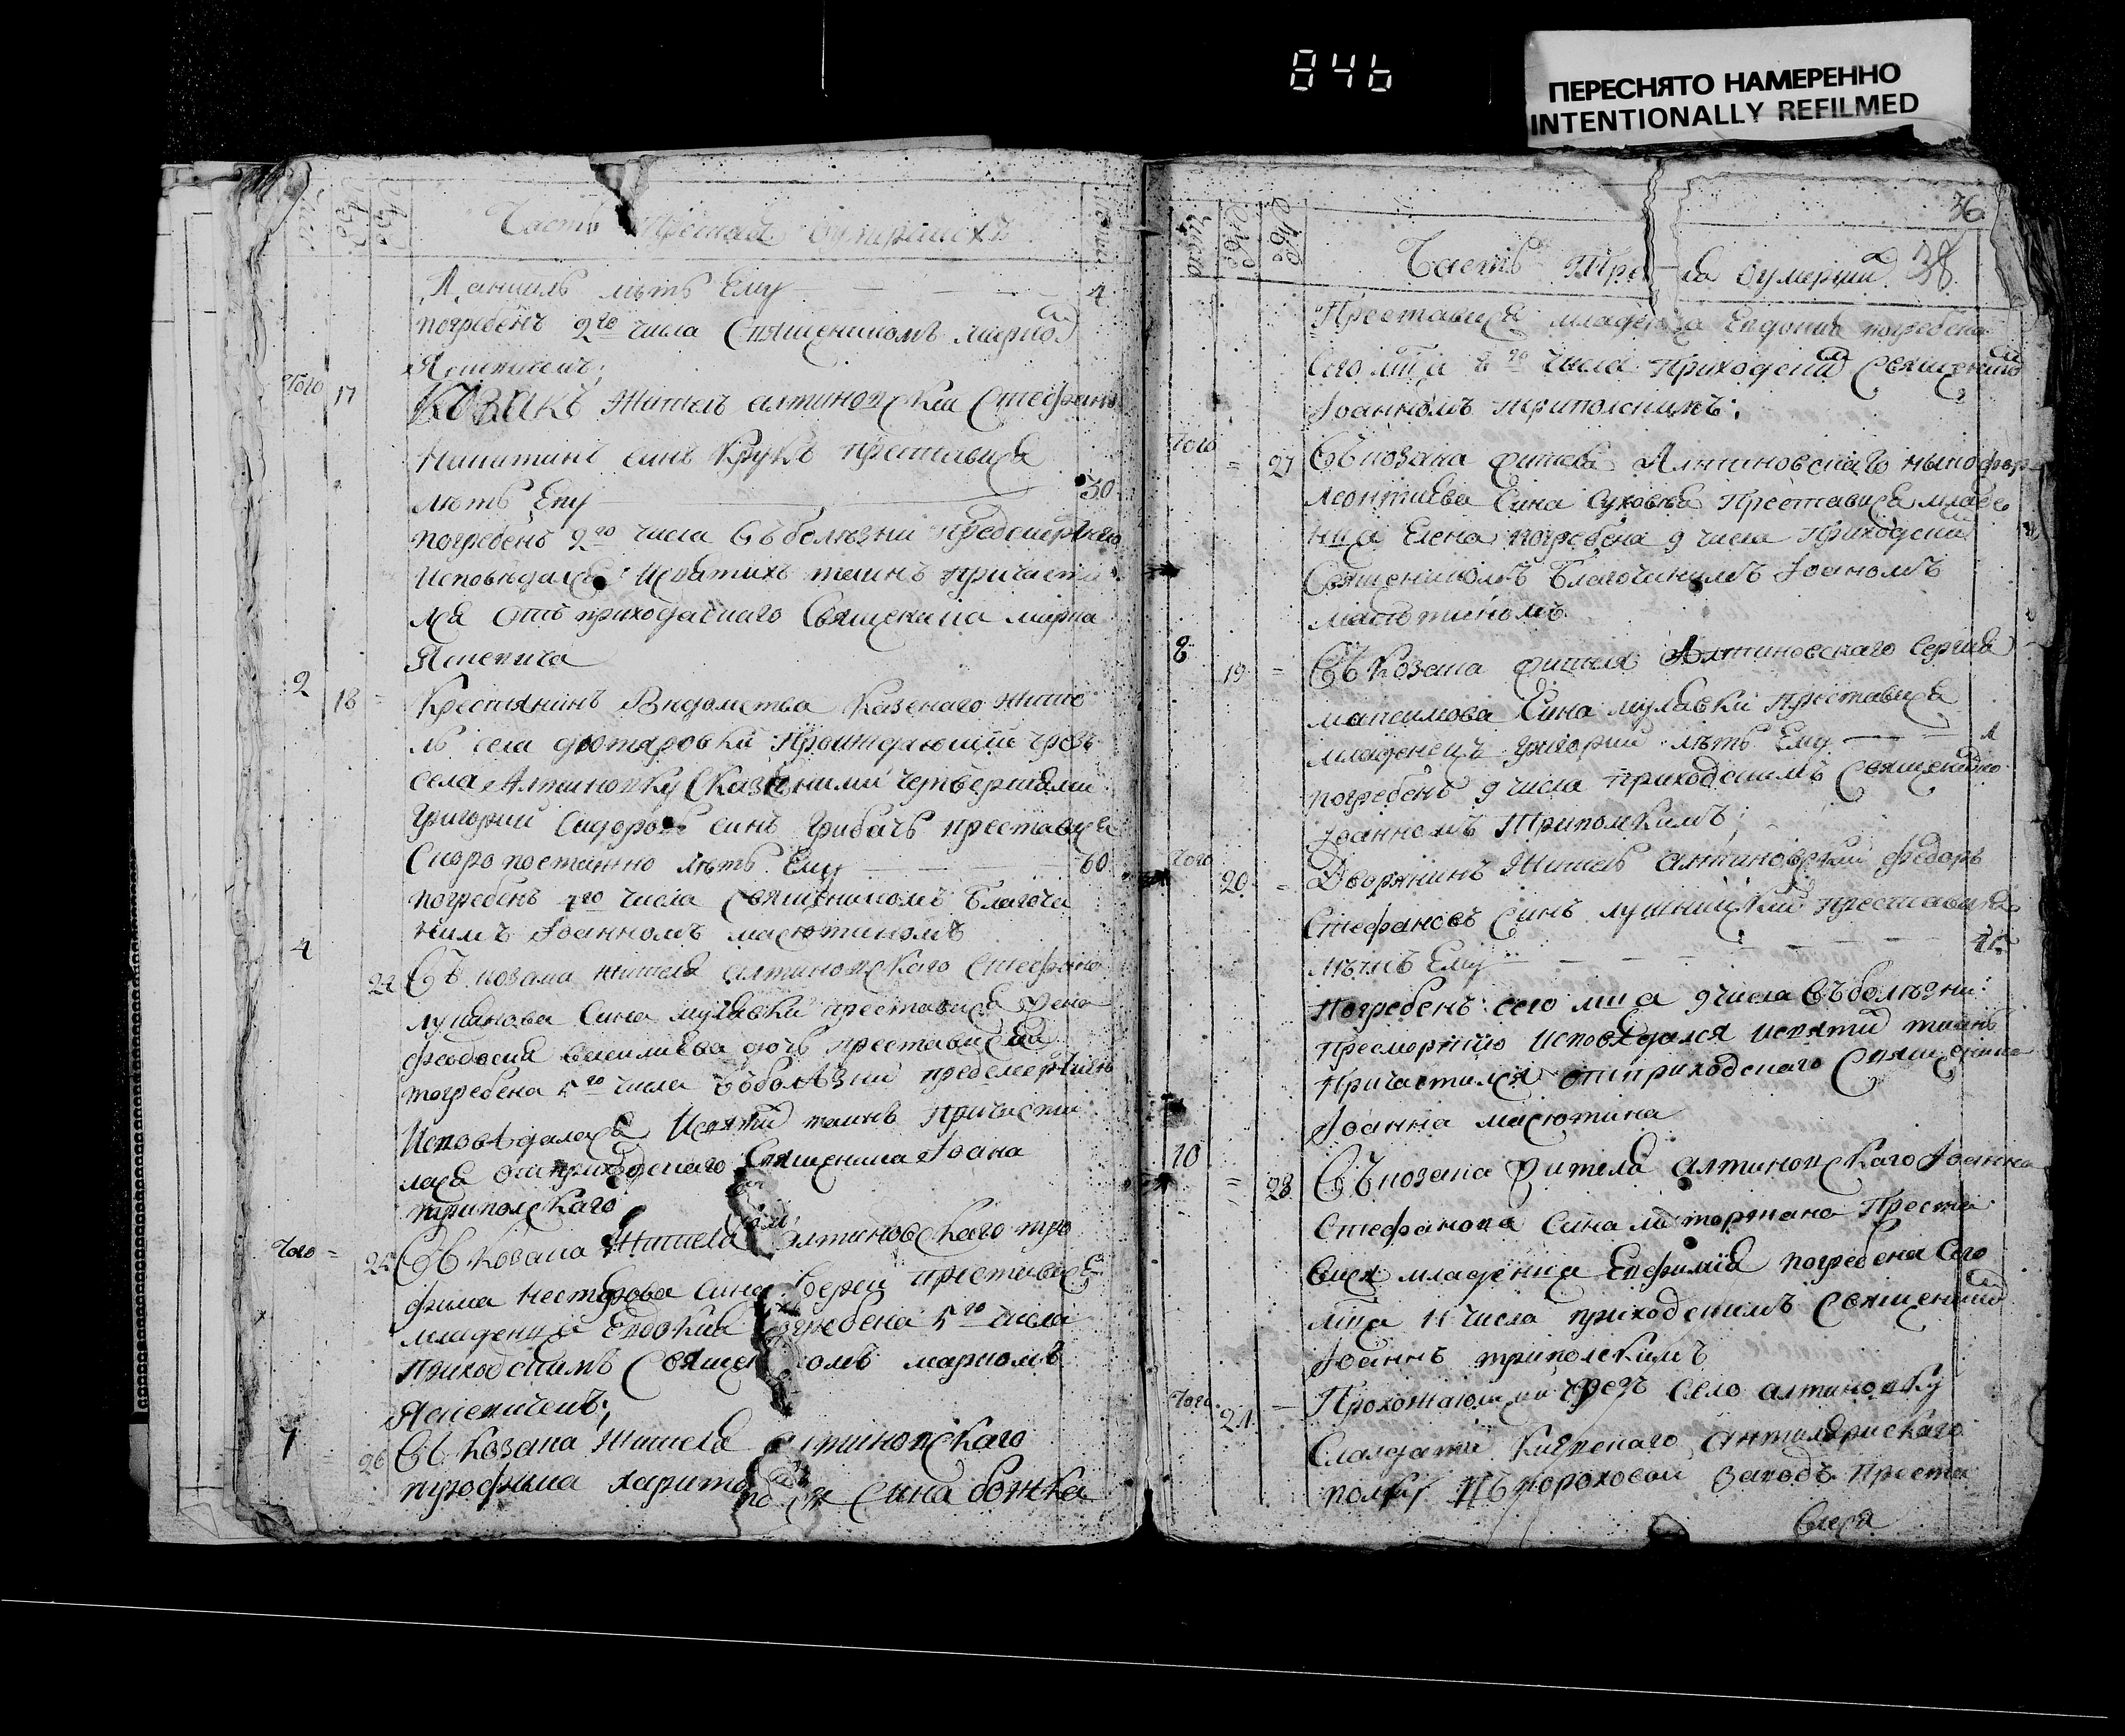 846
ПЕРЕСНЯТО НАМЕРЕННО
INTENTIONALLY REFILMED
Часть Третая Оумершихъ
Даниилъ лѣтъ Ему 4
погребенъ 2го числа Священикомъ марко
Ясневичемъ;
Того 17 Козакъ Житель алтиновский Стефанъ
Никитинъ синъ Крукъ преставися
лѣтъ Ему 30
погребенъ 2го числа Съ болѣзни предсмертной
Исповѣдался: Исвятихъ таинъ причасти
лся Отъ приходскаго Священика марка
Ясневича
2 18 = Крестиянинъ Вѣдомства Казенаго жите
ль села дютяровки Проижджающий чрезъ
села Алтиновку Сказеними четвертями
григорий Сидоровъ синъ грибачъ преставися
Скоропостижно лѣтъ Ему 60
погребенъ числа Священикомъ Благочи
нимъ Иоанномъ масютиномъ
4 24 Съ козака жителя алтиновскаго Стефана
лукянова Сина мулявки преставися Жена
феодосия василиева дочь преставися
погребена 5го числа Соболѣзни предсмертной
Исповѣдалась Исвятих таинъ Причасти
лася отприходскаго Священика Иоана
триполскаго
Того = 25 Съ козака Жителя Алтиновскаго тро
фима нестерова сина преставися
младеница Евдокия погребена 5го числа
приходскимъ Священикомъ маркомъ
Ясневичемъ;
7 26 Съ козака Жителя алтиновскаго
трофима харитонова Сина божка
36
38
Число
Часть Третая Оумерших
Преставися младеница Евдокия погребена
Сего мца 8го числа Приходским Священиком
Иоанномъ триполскимъ;
Того = 27 Съ козака жителя Алтиновскаго
леонтиева Сина Суховѣя Преставися младе
ница Елена погребена 9 числа Приходским
Священикомъ Благочинимъ Иоаномъ
масютиномъ
8 19 = Съ Козака жителя Алтиновскаго Сергия
максимова Сина мулявки Преставися
младенецъ григорий лѣтъ Ему
погребенъ 9 числа приходскимъ Священико
Иоанномъ Триполскимъ;
Того 20 = Дворянинъ Житель алтиновский федоръ
Стефановъ Синъ Преставися
лѣтъ Ему
Погребенъ сего мца 9 числа Съболѣзни
Пресмортной исповѣдался исвятих таинъ
Причастился отприходскаго Священика
Иоанна масютина
10 = 28 Съ козака жителя алтиновскаго Иоанна
Стефанова Сина Преста
вися младеница Евфимия погребена Сего
мца 11 числа приходскимъ Священиком
Иоаннъ триполскимъ
Того 21 = Прохожающий чрезъ Село алтиновку
Салдатъ Киевскаго Антилярискаго
полка пороховой заводъ Преста
вися